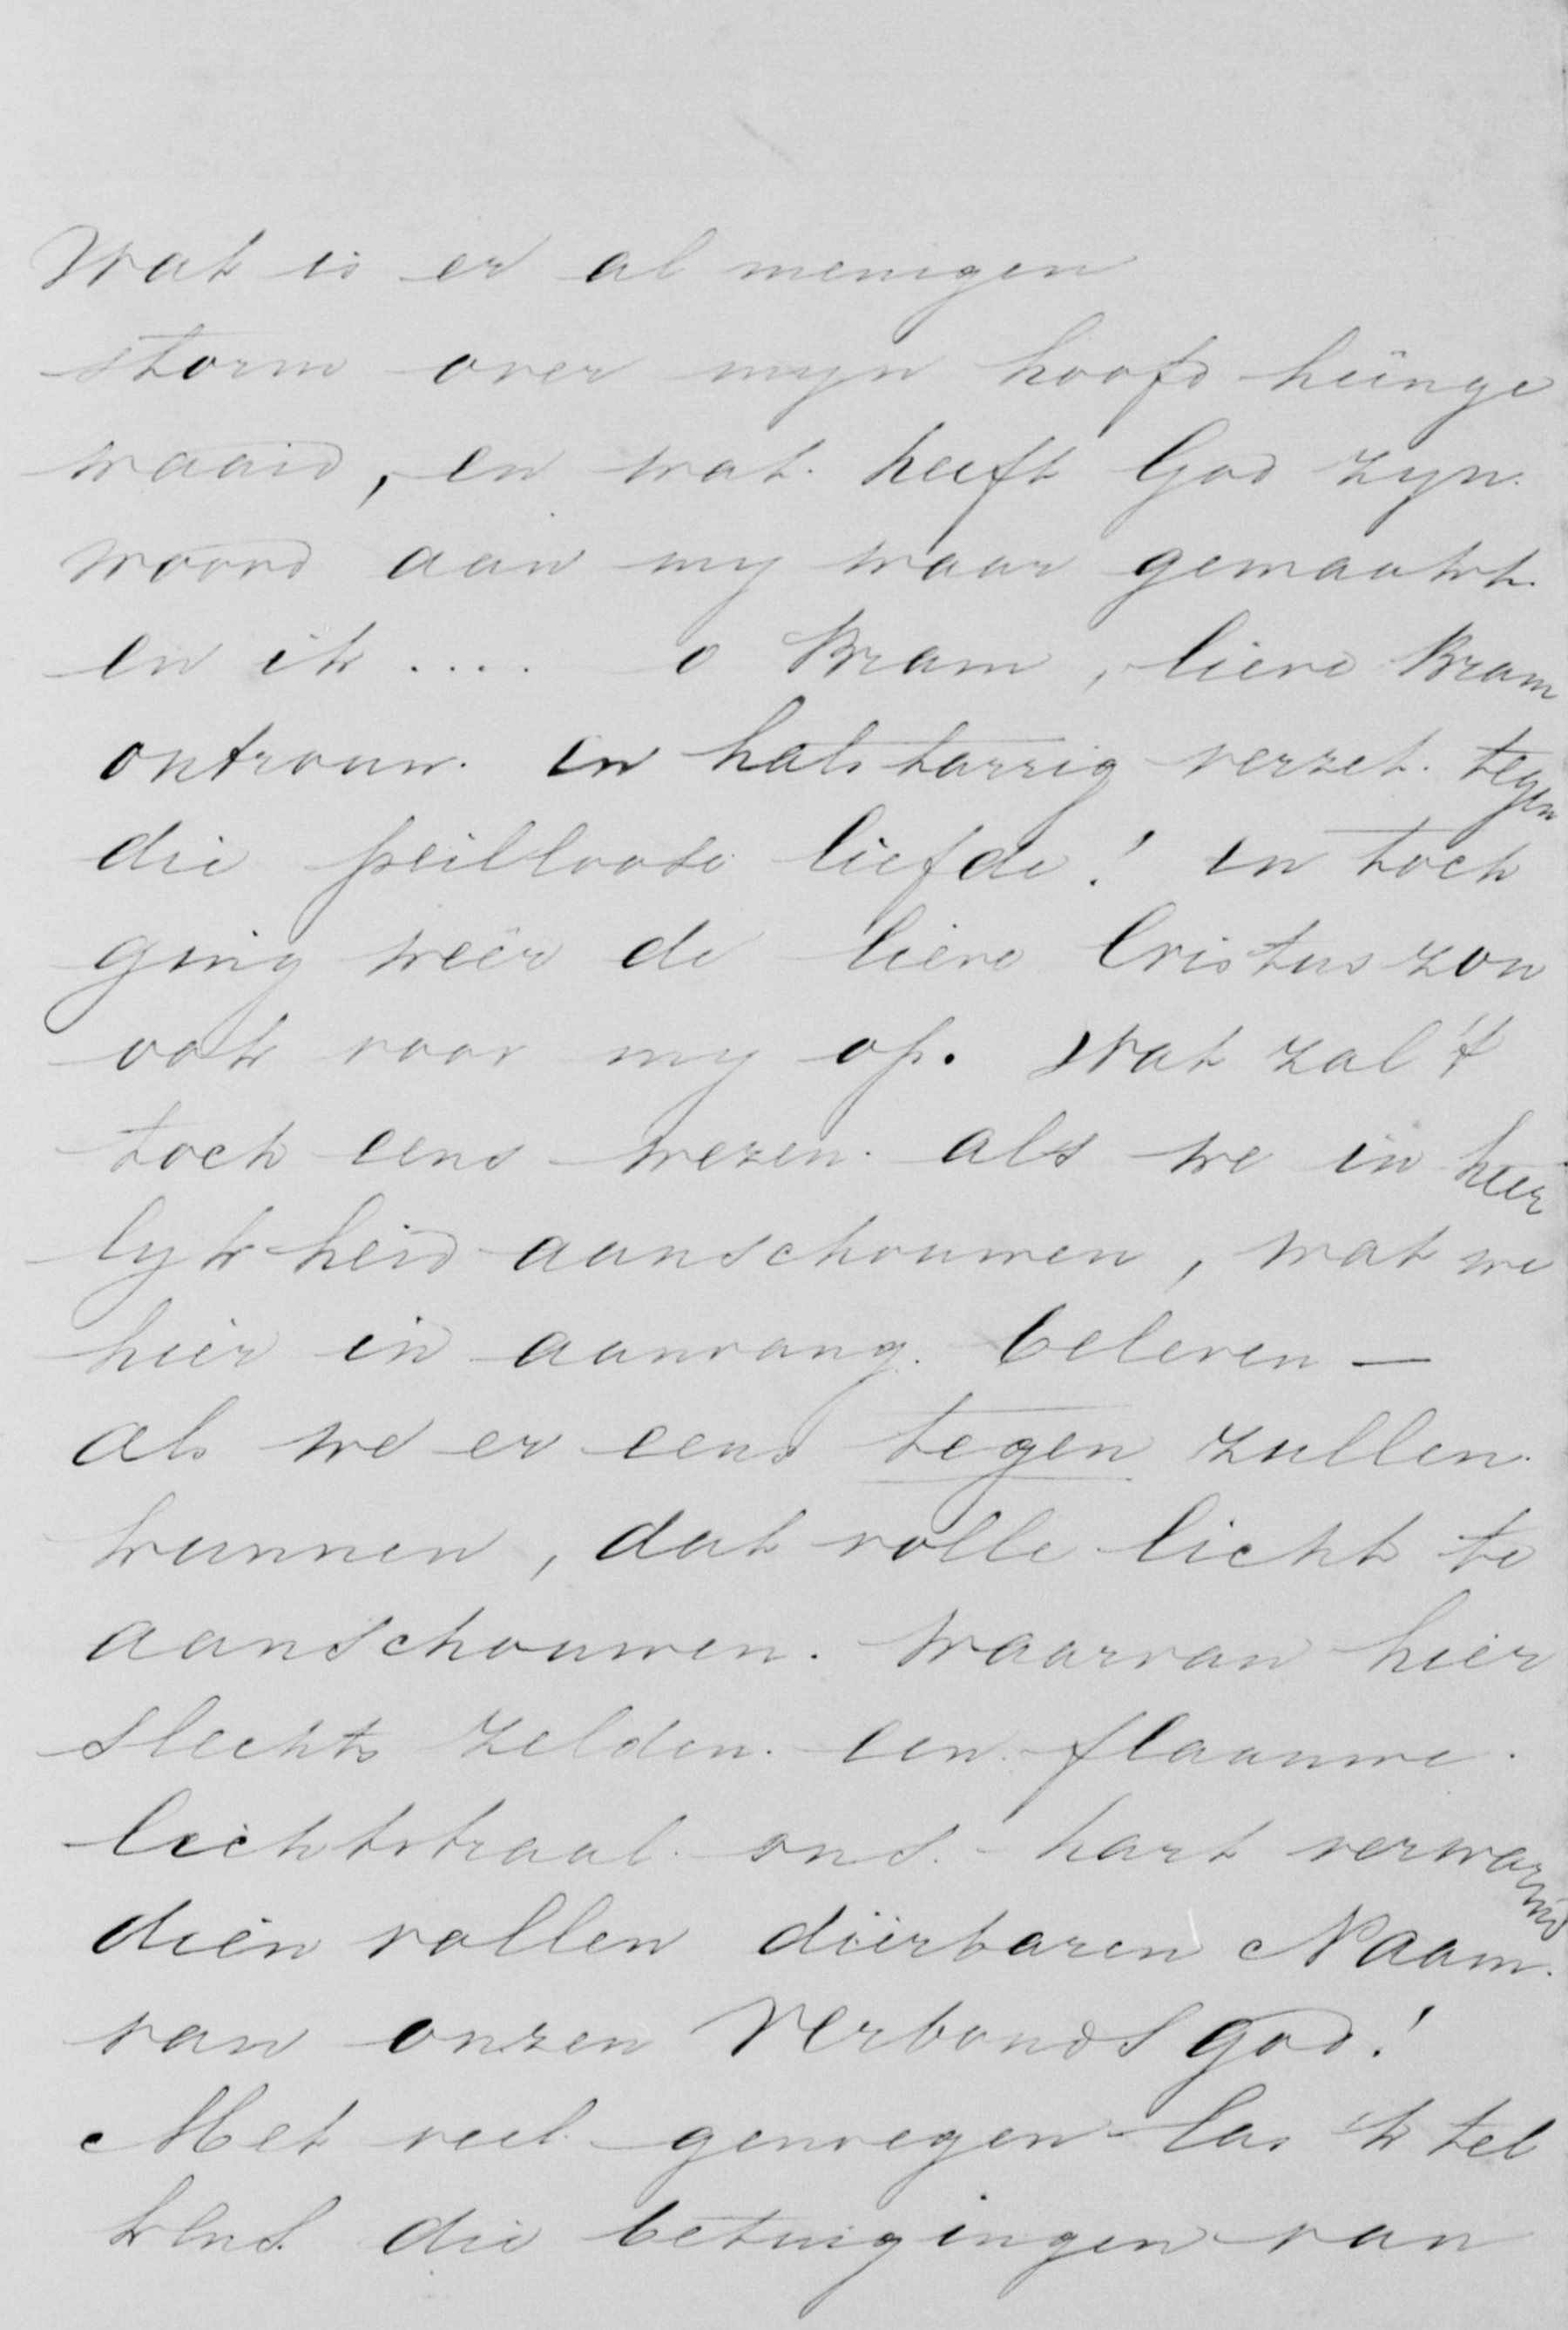 Wat is er al menigen
storm over myn hoofd heinge
waaid, en wat heeft God zyn
woord aan my waar gemaakt
en ik .... o Bram, lieve Bram
ontrouw en halstarrig verzet tegen
die peilloose liefde! en toch
ging weêr de lieve Cristus zon
ook voor my op. Wat zal 't
toch eens wezen als we in heer
lykheid aanschouwen, wat we
hier in aanvang beleven —
als we er eens tegen zullen
kunnen, dat volle licht te
aanschouwen. waarvan hier
slechts zelden een flaauwe
lichtstraal ons hart verwarmd
dien vollen dierbaren Naam
van onzen Verbonds god!
Met veel genoegen las 'k tel
kens die betuigingen van